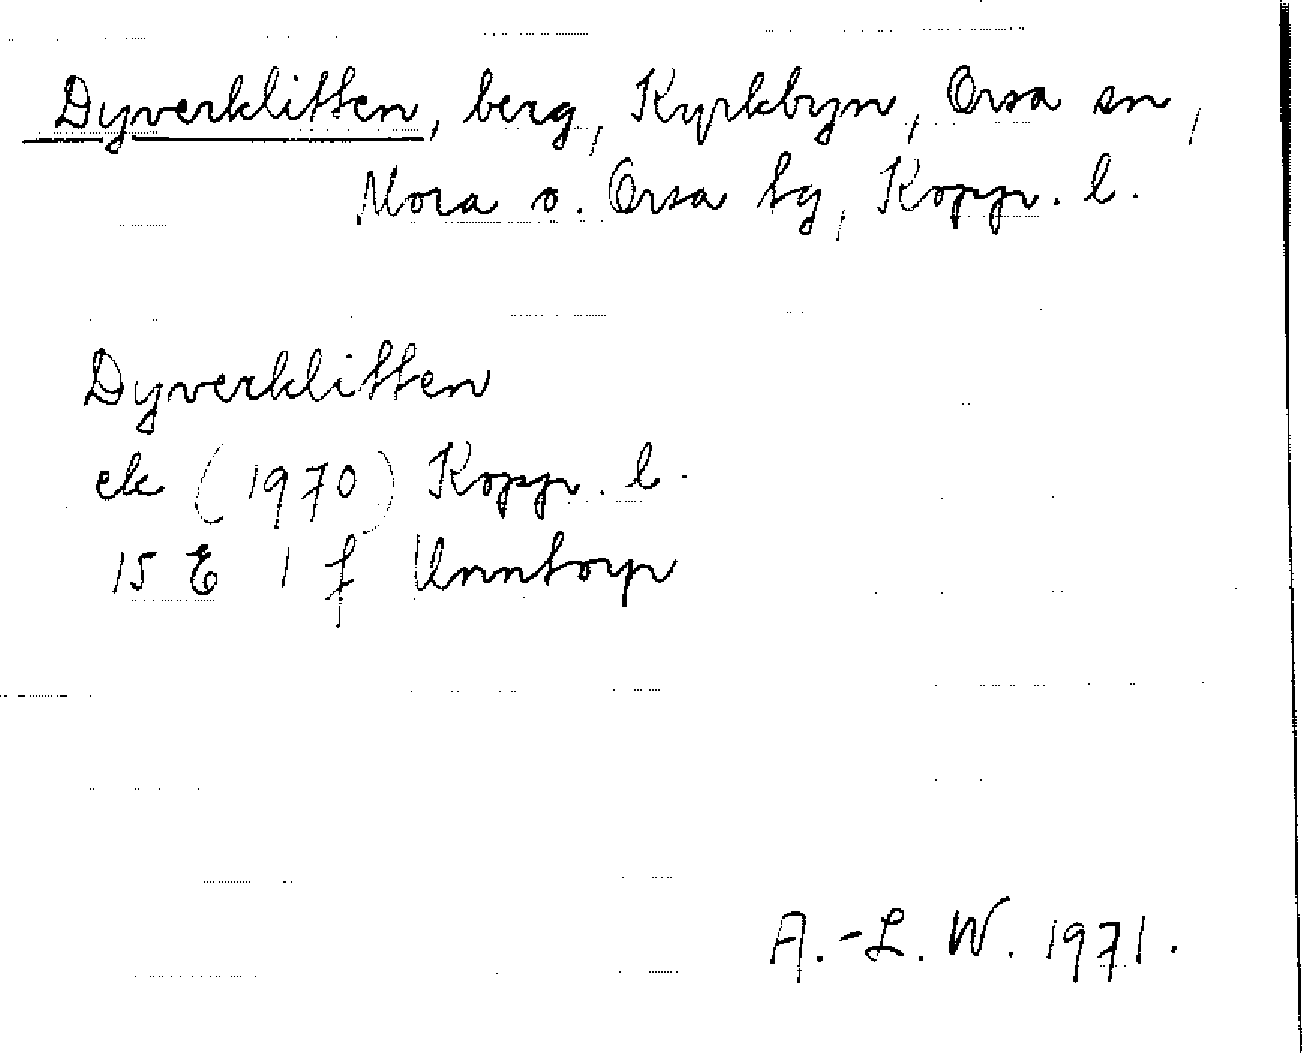 Dyverklitten, berg, Kyrkbyn, Orsa sn,
Mora o. Orsa tg, Kopp. l.
Dyverklitten
ek (1970) Kopp. l.
15 E 1 f Unntorp
A.-L. W. 1971.